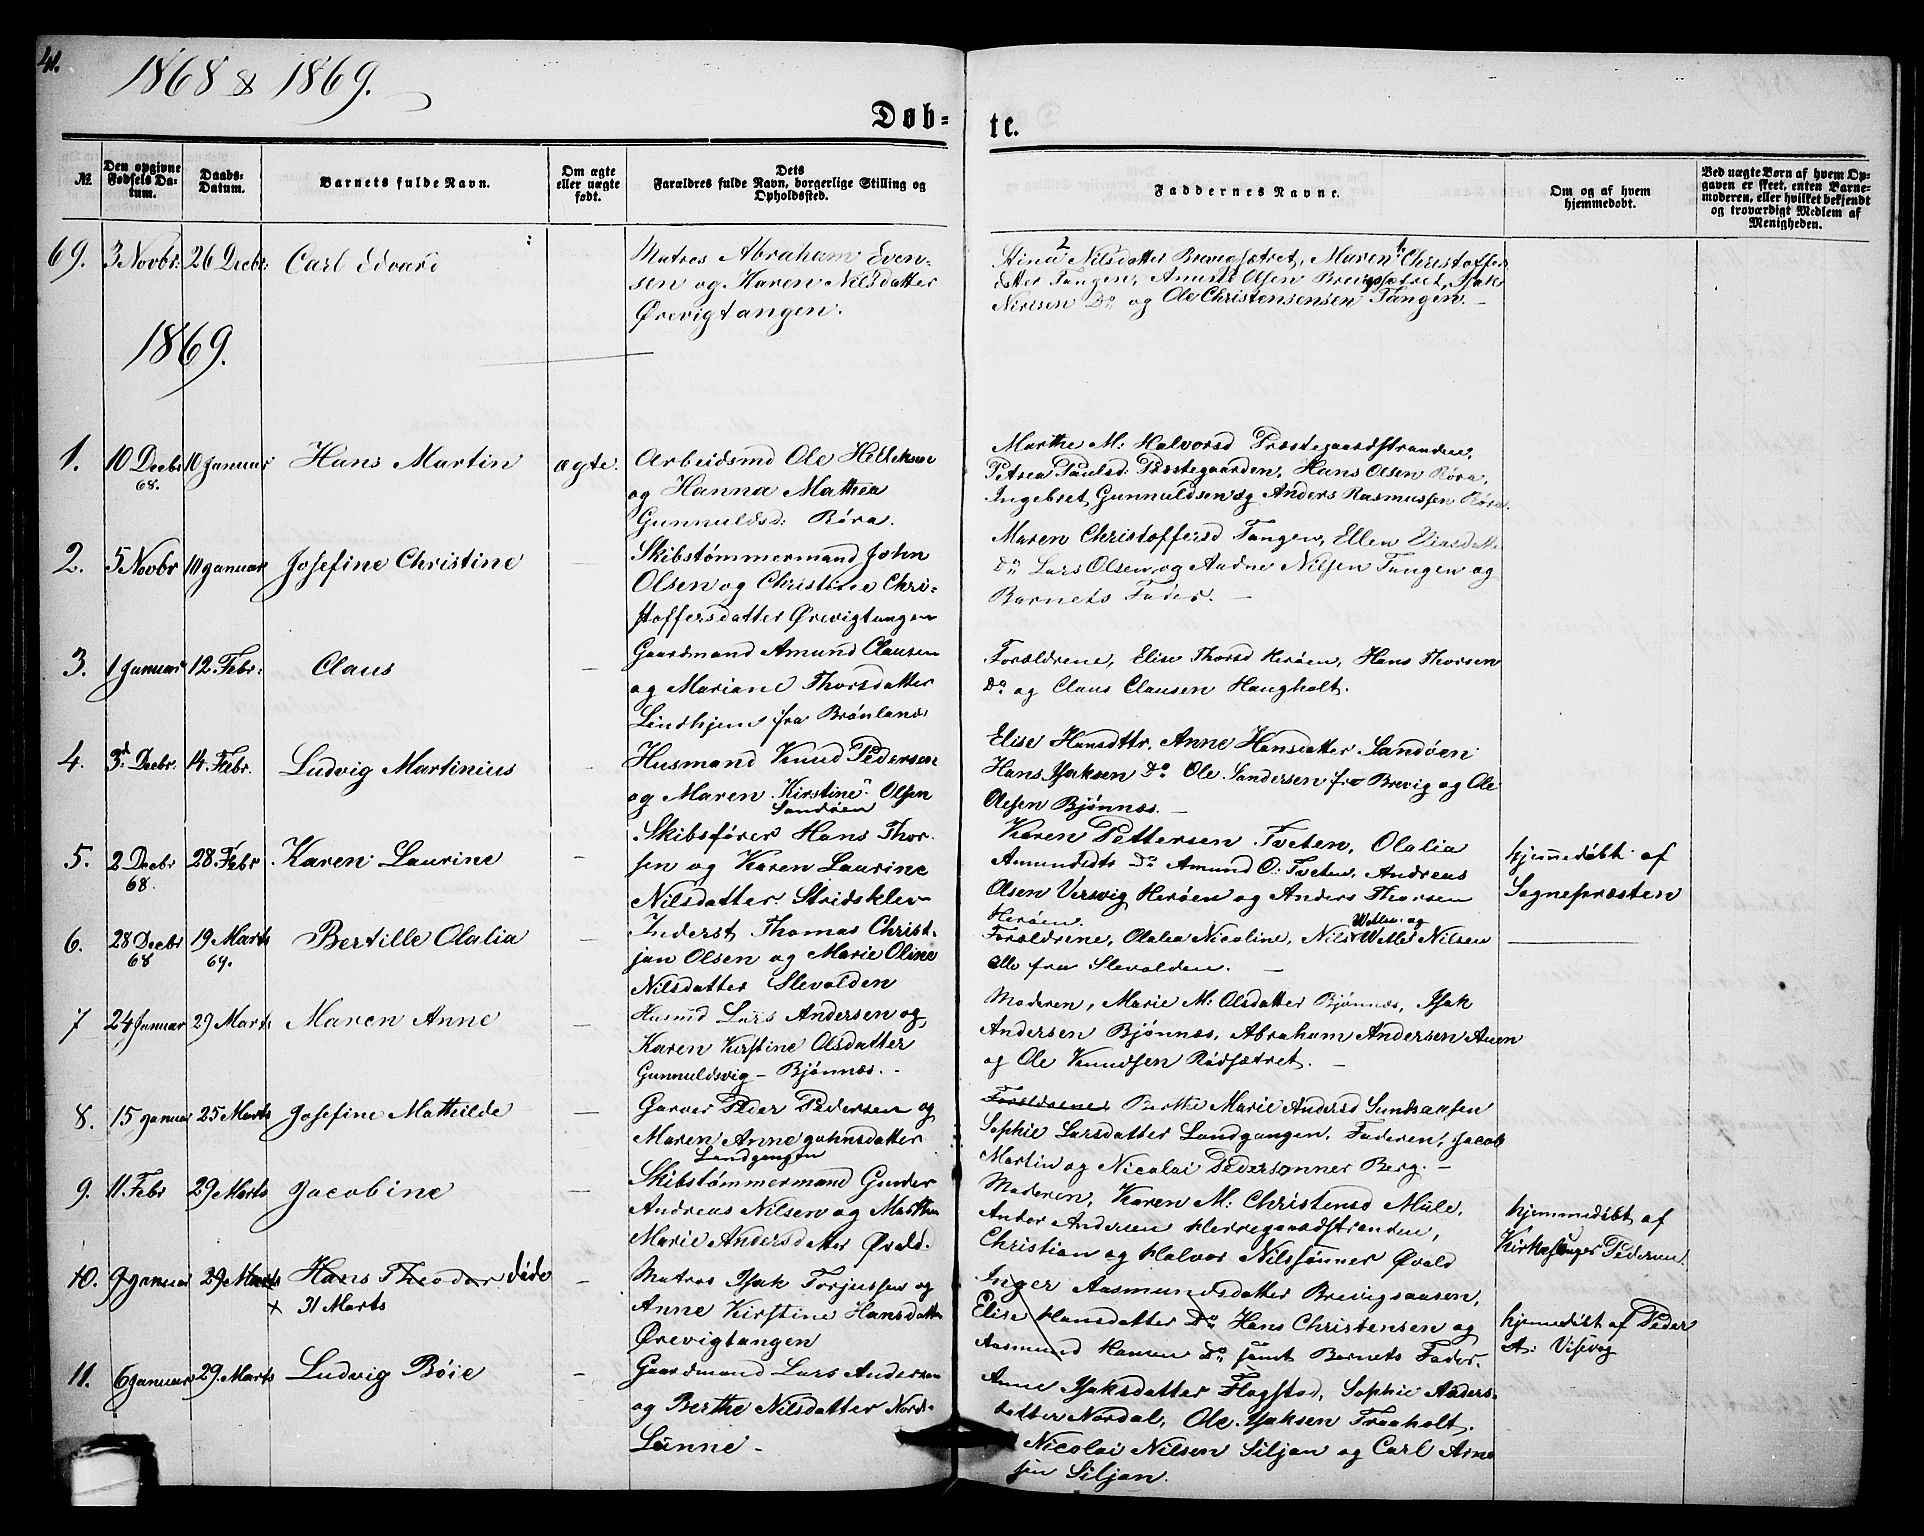 41.
1868 & 1869.
Døb-
te.
№
Den opgivne Fødsels Da-tum.
Daabs-Datum.
Barnets fulde Navn.
Om ægte eller uægte født.
Dets Forældres fulde Navn, borgerlige Stilling og Opholdssted.
Faddernes Navne.
Om og af hvem hjemmedøbt.
Ved uægte Børn af hvem Op-gaven er skeet, enten Barne-moderen, eller hvilket bekjendt og troværdigt Medlem af Menigheden.
69. 3 Novbr: 26 Decbr: Carl Edvard
Matros Abraham Even-
sen og Karen Nilsdatter
Ørevigtangen.
Stina Nilsdatter Brevigsætret, Maren Christoffers
datter Tangen, Amund Olsen Brevigsætret, Isak
Nielsen Do og Ole Christensensen Tangen. -
1869.
1. 10 Decbr 68. 10 Januar Hans Martin ægte.
Arbeidsmd Ole Helleksen
og Hanna Mathea
Gunnuldsd: Røra.
Marthe M: Halvorsd Præstegaardstranden,
Petrea Paulsd: Præstegaarden, Hans Olsen Røra,
Ingebret Gunnuldsen og Anders Rasmussen Røra.
2. 5 Novbr 10 Januar Josefine Christine
Skibstømmermand John
Olsen og Christine Chri-
stoffersdatter Ørevigtangen
Maren Christoffersd Tangen, Ellen
Do Lars Olsen og Audne Nilsen Tangen og
Barnets Fader. -
3. 1 Januar 12. Febr: Claus -
Gaardmand Amund Clausen
og Mariane Thorsdatter
Lindhjem fra Brønlanes
Forældrene, Elise Thorsd Herøen, Hans Thorsen
Do og Claus Clausen Haugholt.
4. 3 Decbr. 14. Febr. Ludvig Martinius -
Husmand Knud Pedersen
og Maren Kirstine Olsen
Sandøen
Elise Hansdttr, Anne Hansdatter Sandøen
Hans Isaksen Do Ole Sandersen fra Brevig og Ole
Olsen Bjønnæs. -
5. 2 Decbr 68. 28 Febr Karen Laurine -
Skibsfører Hans Thor-
sen og Karen Laurine
Nilsdatter Stridsklev
Karen Pettersen Tveten, Olalia
Amundsdtr Do Amund O: Tveten, Andreas
Olsen Versvig Herøen og Anders Thorsen
Herøen.
hjemmedøbt af
Sognepræsten
6. 28 Decbr 68 19 Marts 69. Bertille Olalia -
Inderst Thomas Christ-
jan Olsen og Marie Oline
Nilsdatter Slevolden
Forældrene, Olalia Nicoline, Nils Wetle og Wetle Nilsen
alle fra Slevolden. -
7 24 Januar 29 Marts Maren Anne -
Husmd Lars Andersen og
Karen Kirstine Olsdatter
Gunnuldsvig - Bjønnæs. -
Moderen, Marie M: Olsdatter Bjønnæs, Isak
Andersen Bjønnæs, Abraham Andersen Auen
og Ole Knudsen Rødsætret. -
8. 15 Januar 25 Marts Josefine Mathilde -
Garver Peder Pedersen og
Maren Anne Johnsdatter
Landgangen
Forældrene Berthe Marie Andersd Sundsaasen
Sophie Larsdatter Landgangen, Faderen, Jacob
Martin og Nicolai Pedersønner Berg. -
9. 11. Febr 29 Marts Jacobine -
Skibstømmermand Gunder
Andreas Nilsen og Marthe
Marie Andersdatter Øvald.
Moderen, Karen M: Christensd Mule,
Andor Andersen Herregaardstranden,
Christian og Halvor Nilssønner Øvald
hjemmedøbt af
Kirkesanger Pedersen.
10. 9 Januar 29 Marts Hans Theodor døde -
x 31 Marts
Matros Isak Torjussen og
Anne Kirstine Hansdatter
Ørevigtangen
Inger Aasmundsdatter Brevigsaasen,
Elise Hansdatter Do Hans Christensen og
Aasmund Hansen Do samt Barnets Fader.
hjemmedøbt af Peder
A:
11. 6 Januar 29. Marts Ludvig Bøie -
Gaardmand Lars Andersen
og Berthe Nilsdatter Nord-
Lønne -
Anne Isaksdatter Flogstad, Sophie Anders-
datter Nordal, Ole Isaksen Traaholt.
Nicolai Nilsen Siljan og Carl Arne
sen Siljan.